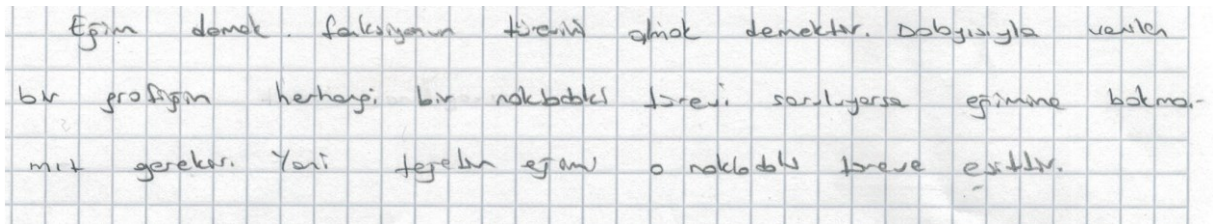 Eğim demek. fonksiyonun türevini almak demektir. Dolayısıyla verilen
bir grafiğin herhangi bir noktadaki türevi soruluyorsa eğimine bakma-
mız gerekir. Yani teğetin eğimi o noktadaki türeve eşittir.